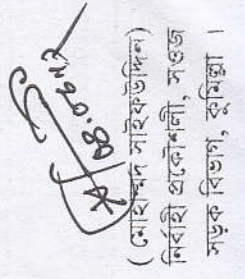 (মোহাম্মদ সাইফউদ্দিন)
নির্বাহী প্রকৌশলী, সওজ
সড়ক বিভাগ, কুমিল্লা।